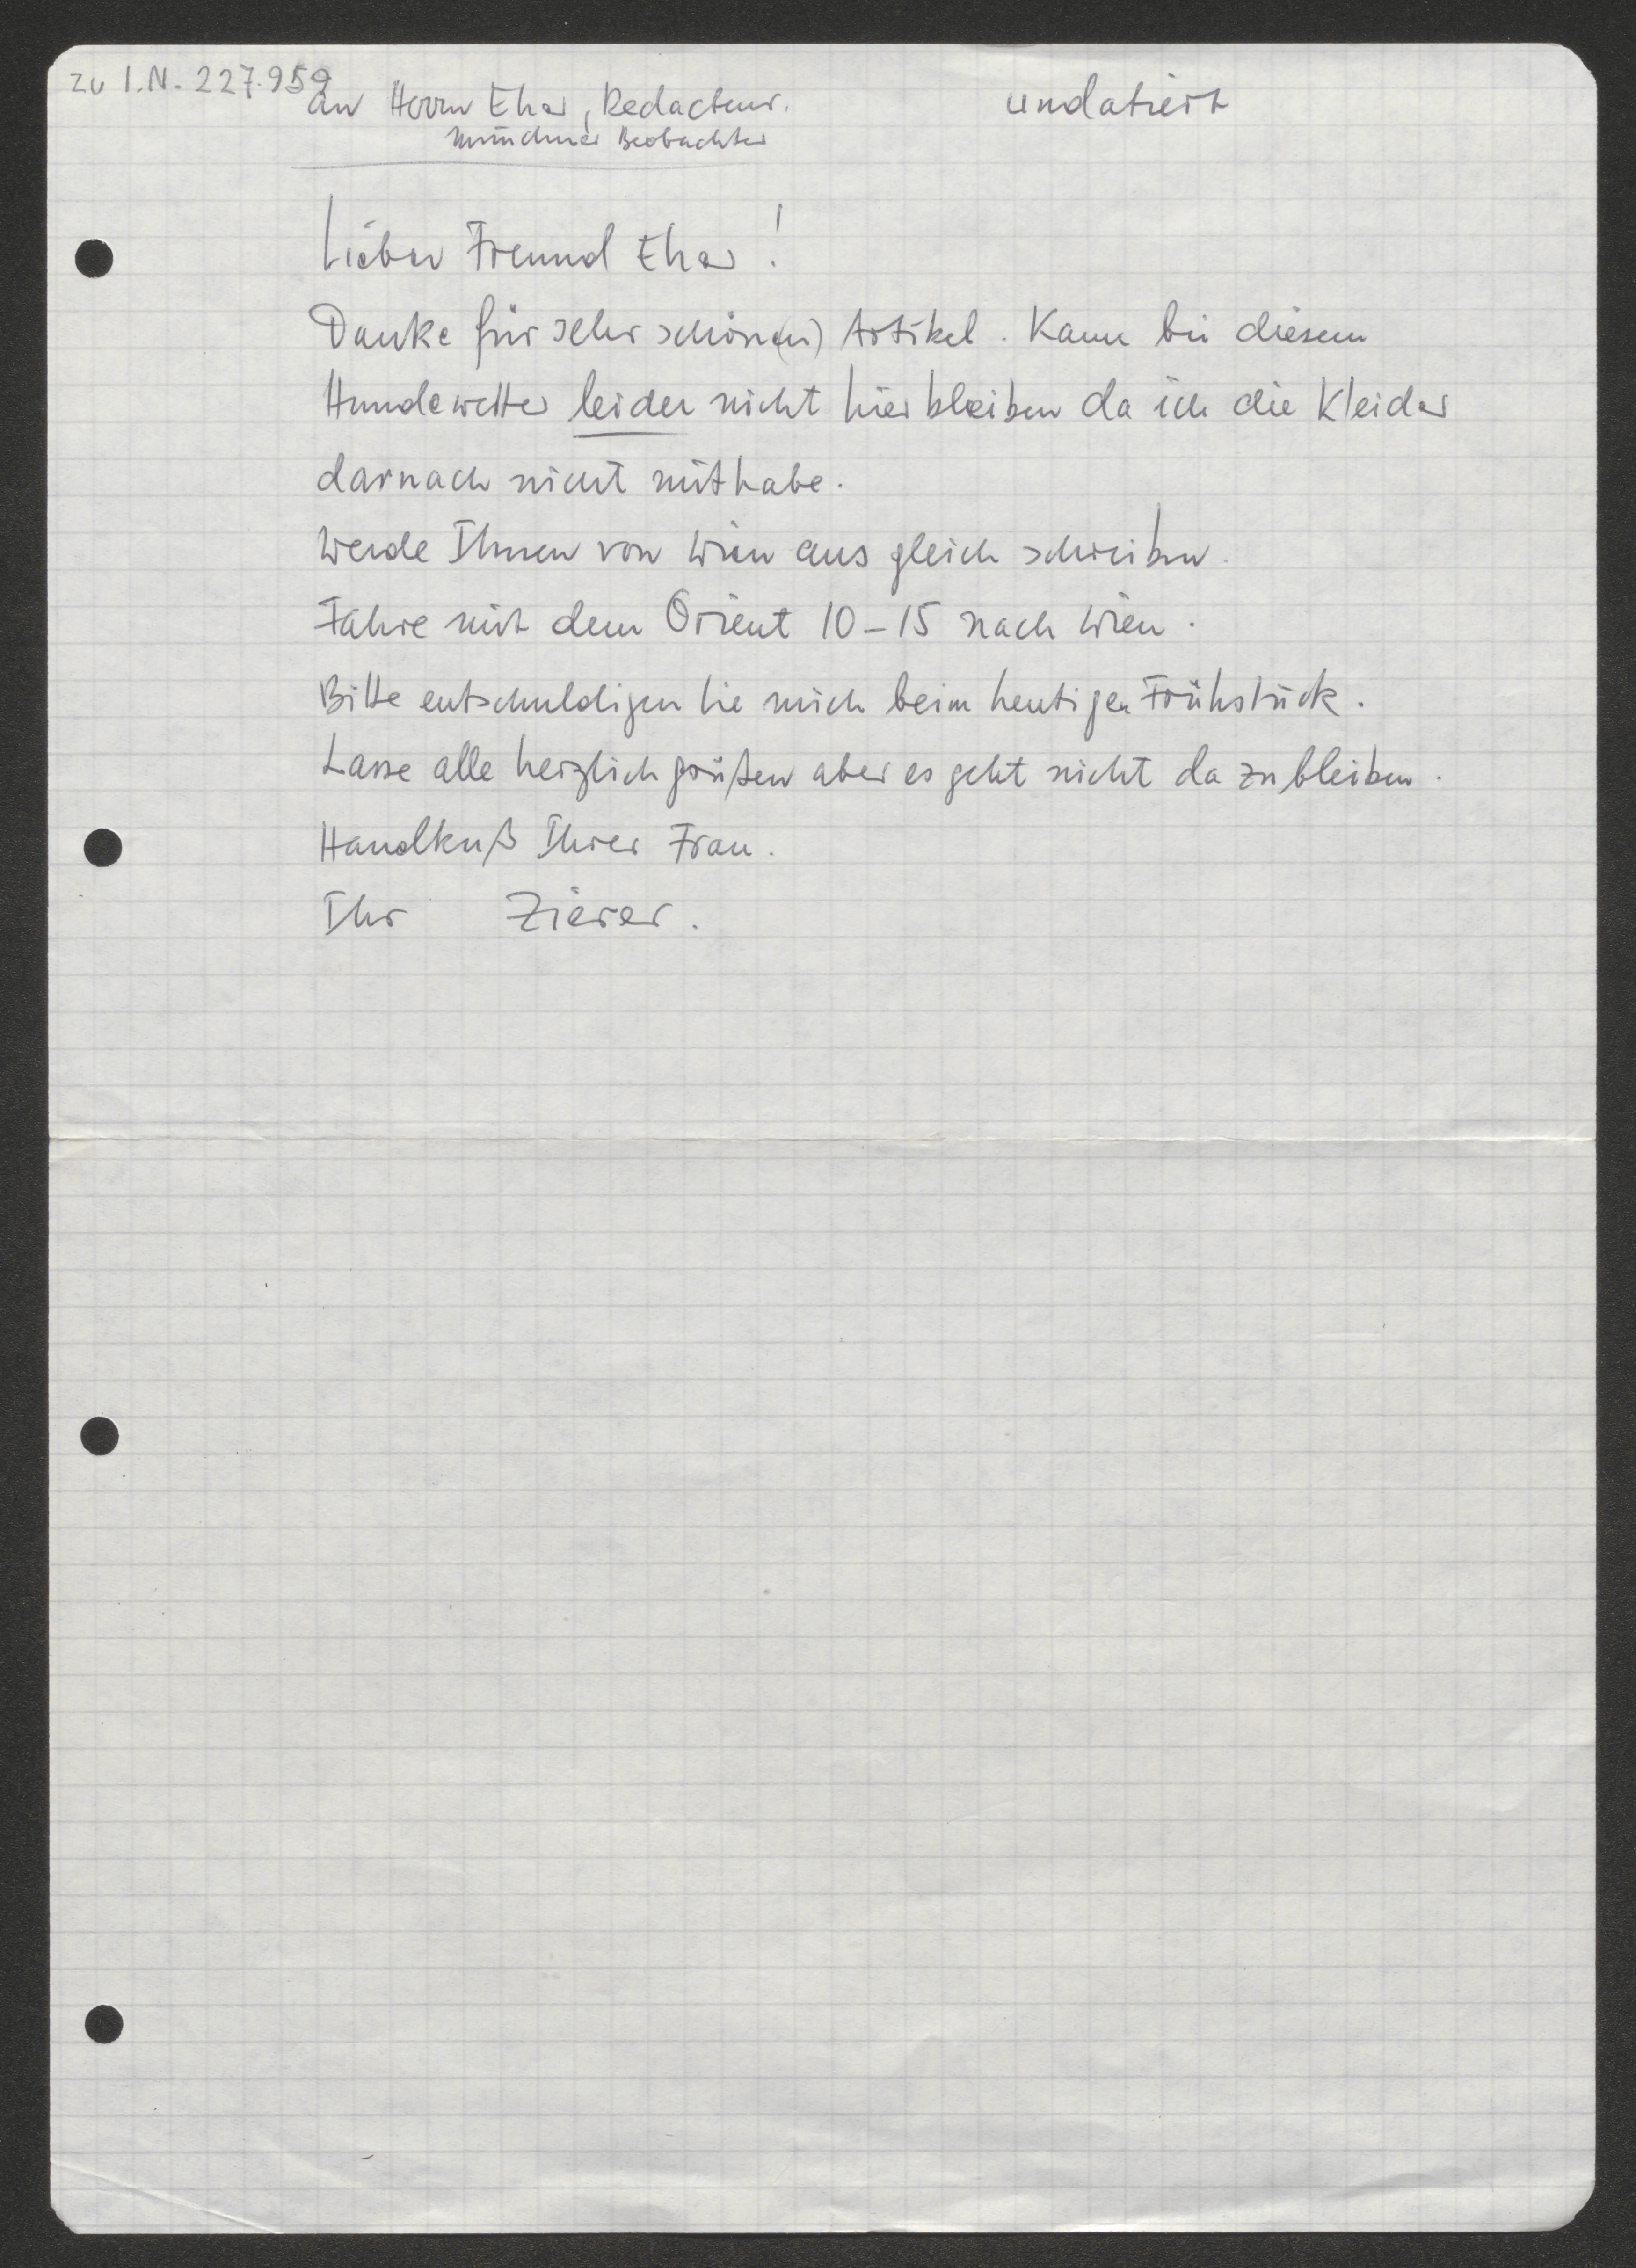 zu I.N. 227.959
An Herrn Eher, Redacteur. undatiert
Münchner Beobachter
Lieber Freund Eher!
Danke für sehr schöne(n) Artikel. Kann bei diesem
Hundewetter leider nicht hierbleiben da ich die Kleider
darnach nicht mithabe.
Werde Ihnen von Wien aus gleich schreiben.
Fahre mit dem Orient 10-15 nach Wien.
Bitte entschuldigen Sie mich beim heutigen Frühstück.
Lasse alle herzlich grüßen aber es geht nicht da zu bleiben.
Handkuß Ihrer Frau.
Ihr Zierer.